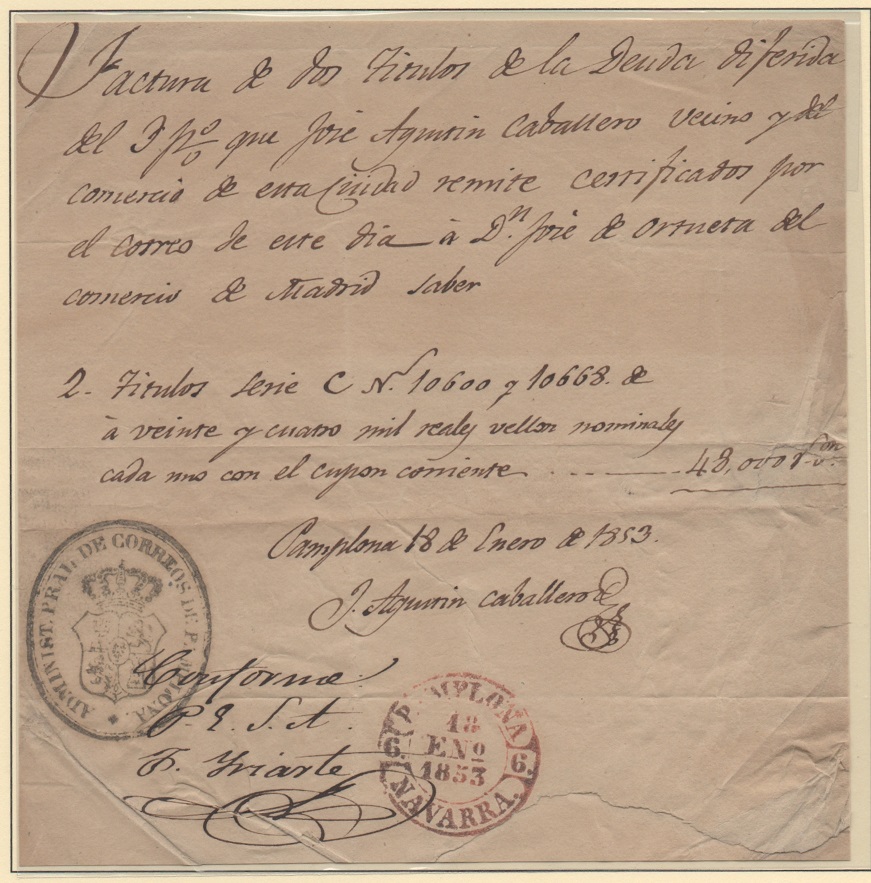 Factura de dos Titulos de la Deuda diferida
del 3 p% que José Agustin Caballero vecino y del
comercio de esta Ciudad remite certificados por
el correo de este dia à Dn. José de Ortueta del
comercio de Madrid saber
2. Titulos serie C Nos. 10600 y 10668. de
à veinte y cuatro mil reales vellon nominales
cada uno con el cupon corriente 48,000 r.von.
Pamplona 18 de Enero de 1853.
J. Agustin Caballero
ADMINIST. PRAL. DE CORREOS DE PAMPLONA
Conforme
P. E. S. A.
F. Yriarte
PAMPLONA
18
ENo
1853
6. 6.
NAVARRA.